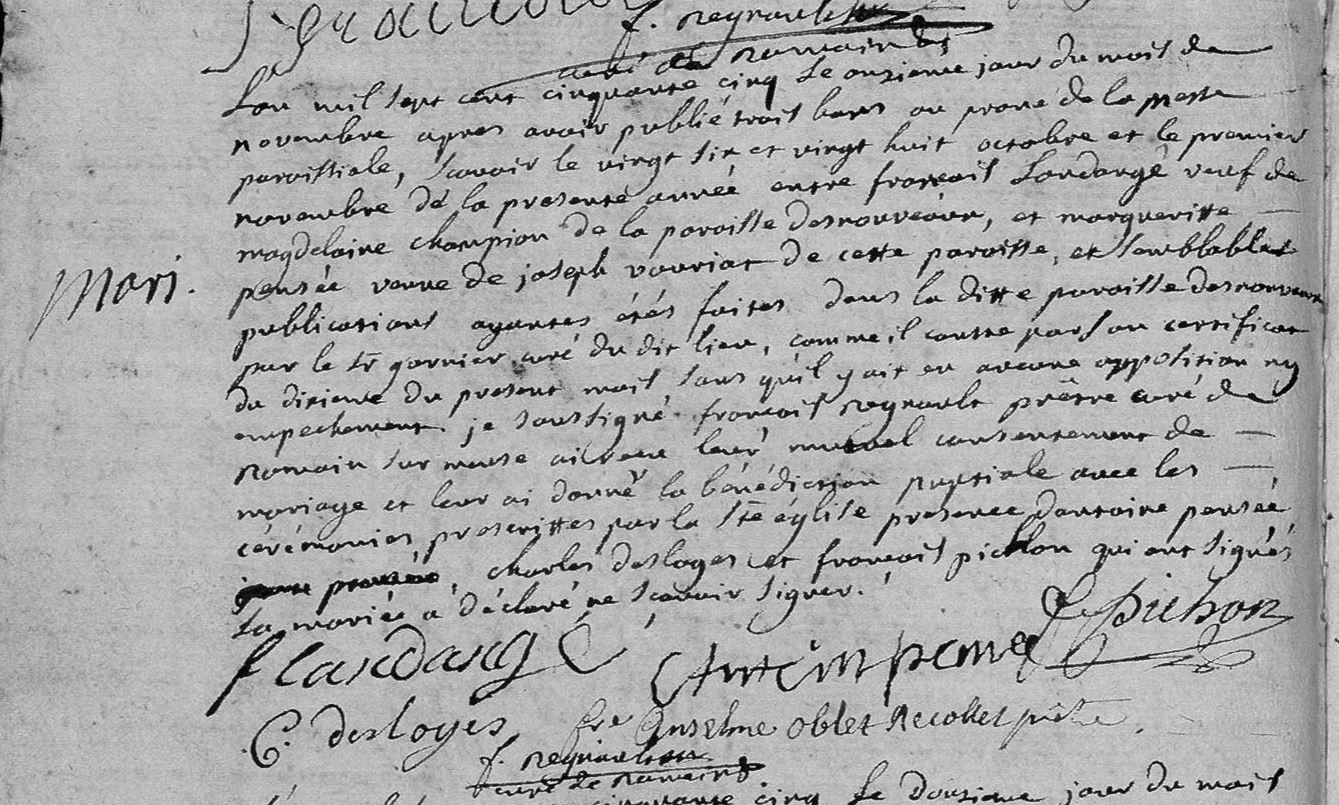 f. Regnault
curé de Romain
L'an mil sept cent cinquante cinq le onzieme jour du mois de
novembre apres avoir publié trois bans au prone de la messe
paroissiale, scavoir le vingt six et vingt huit octobre et le premier
novembre de la presente année entre francois Landangé veuf de
magdelaine champion de la paroisse desnouveaux, et margueritte
pensée veuve de joseph vauriat de cette paroisse, et semblables
publications ayantes étés faites dans la ditte paroisse desnouveaux
par le Sr garnier curé du dit lieu, comme il conste par son certificat
du dixieme du present mois sans qu'il y ait eu aucune opposition ny
empechement. je soussigné francois Regnault prêtre curé de
Mari.
Romain sur meuse ai receu leur mutuel consentement de
mariage et leur ai donné la bénédiction nuptiale avec les
cérémonies prescrittes par la Ste église presence dantoine pensée
, charles desloges et francois pichon qui ont signés
La mariée a déclaré ne scavoir signer.
f Landangé
Antoin pensee
f. pichon
C. desloges
fre Anselme oblet Recollet prêtre
f. Regnault
curé de Romain
cinquante cinq le douzieme jour du mois